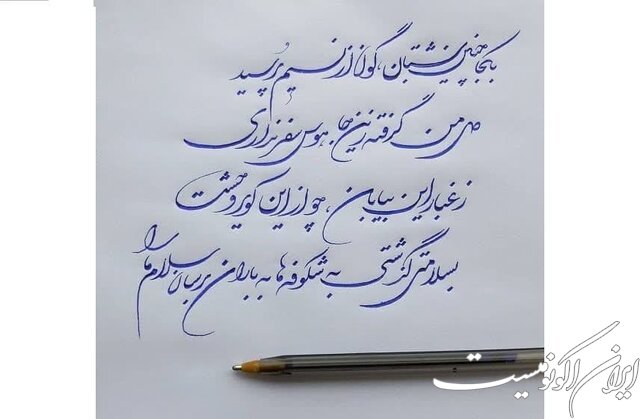 به کجا چنین شتابان، گون از نسیم پرسید
دل من گرفته زین جا، هوس سفر نداری
ز غبار این بیابان، چو از این کویر وحشت
بسلامتی گذشتی به شکوفه ها به باران برسان سلام ما را
ایران اکونومیست